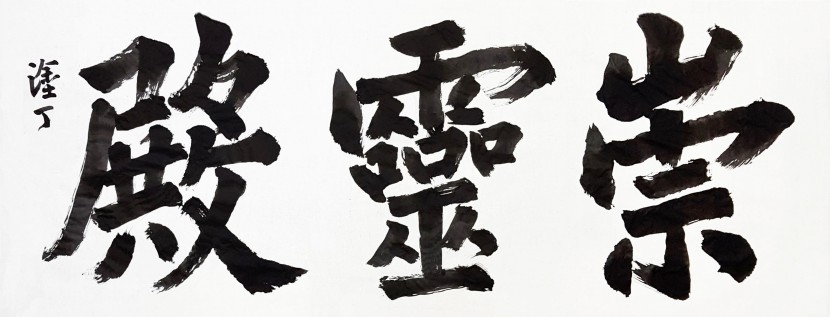 崇靈殿
塗丁